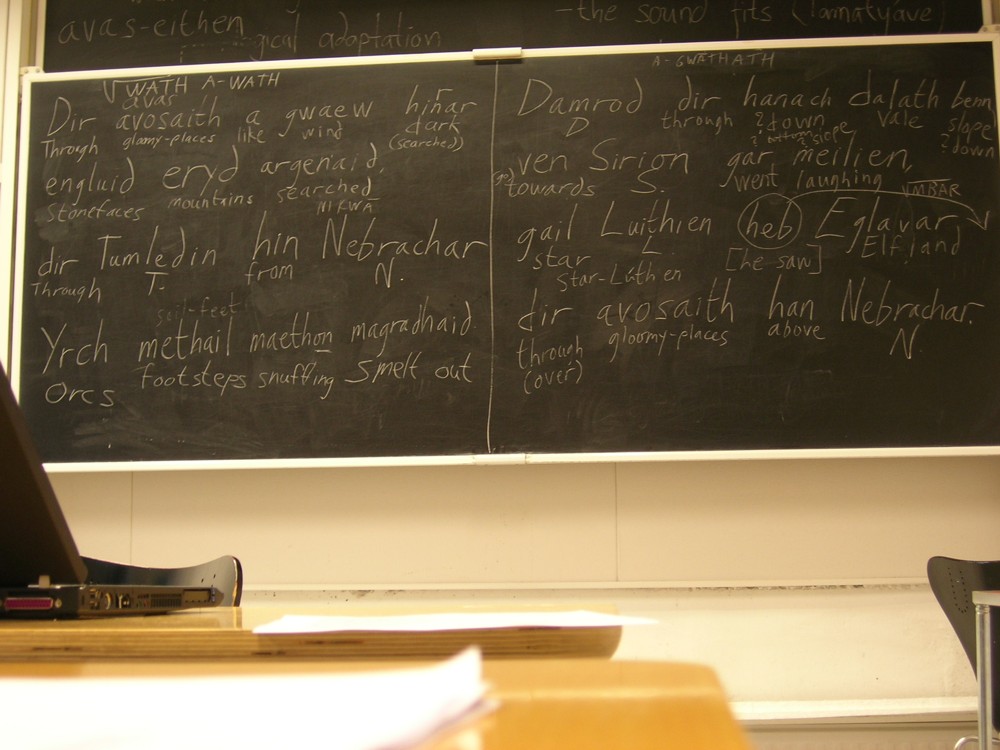 avas-eithen
adaptation
-the sound fits (lannatyáve)
√WATH A-WATH
avas
Dir avosaith a gwaew hinar
Through glomy-places like wind dark
(searched)
engluid eryd argenaid,
stonefaces mountains searched
dir Tumledin hin Nebrachar
Through T. from N.
soil-feet
Yrch methail maethon magradhaid.
Orcs footsteps snuffing smelt out
A-GWATHATH
Damrod dir hanach dalath benn
D through ?down vale slope
?bottom ?slope ?down
ven Sirion gar meilien,
towards S. went laughing √MBAR
gail Luithien heb Eglavar
star L. [he saw] Elfland
star-Lúthien
dir avosaith han Nebrachar.
through gloomy-places above N.
(over)